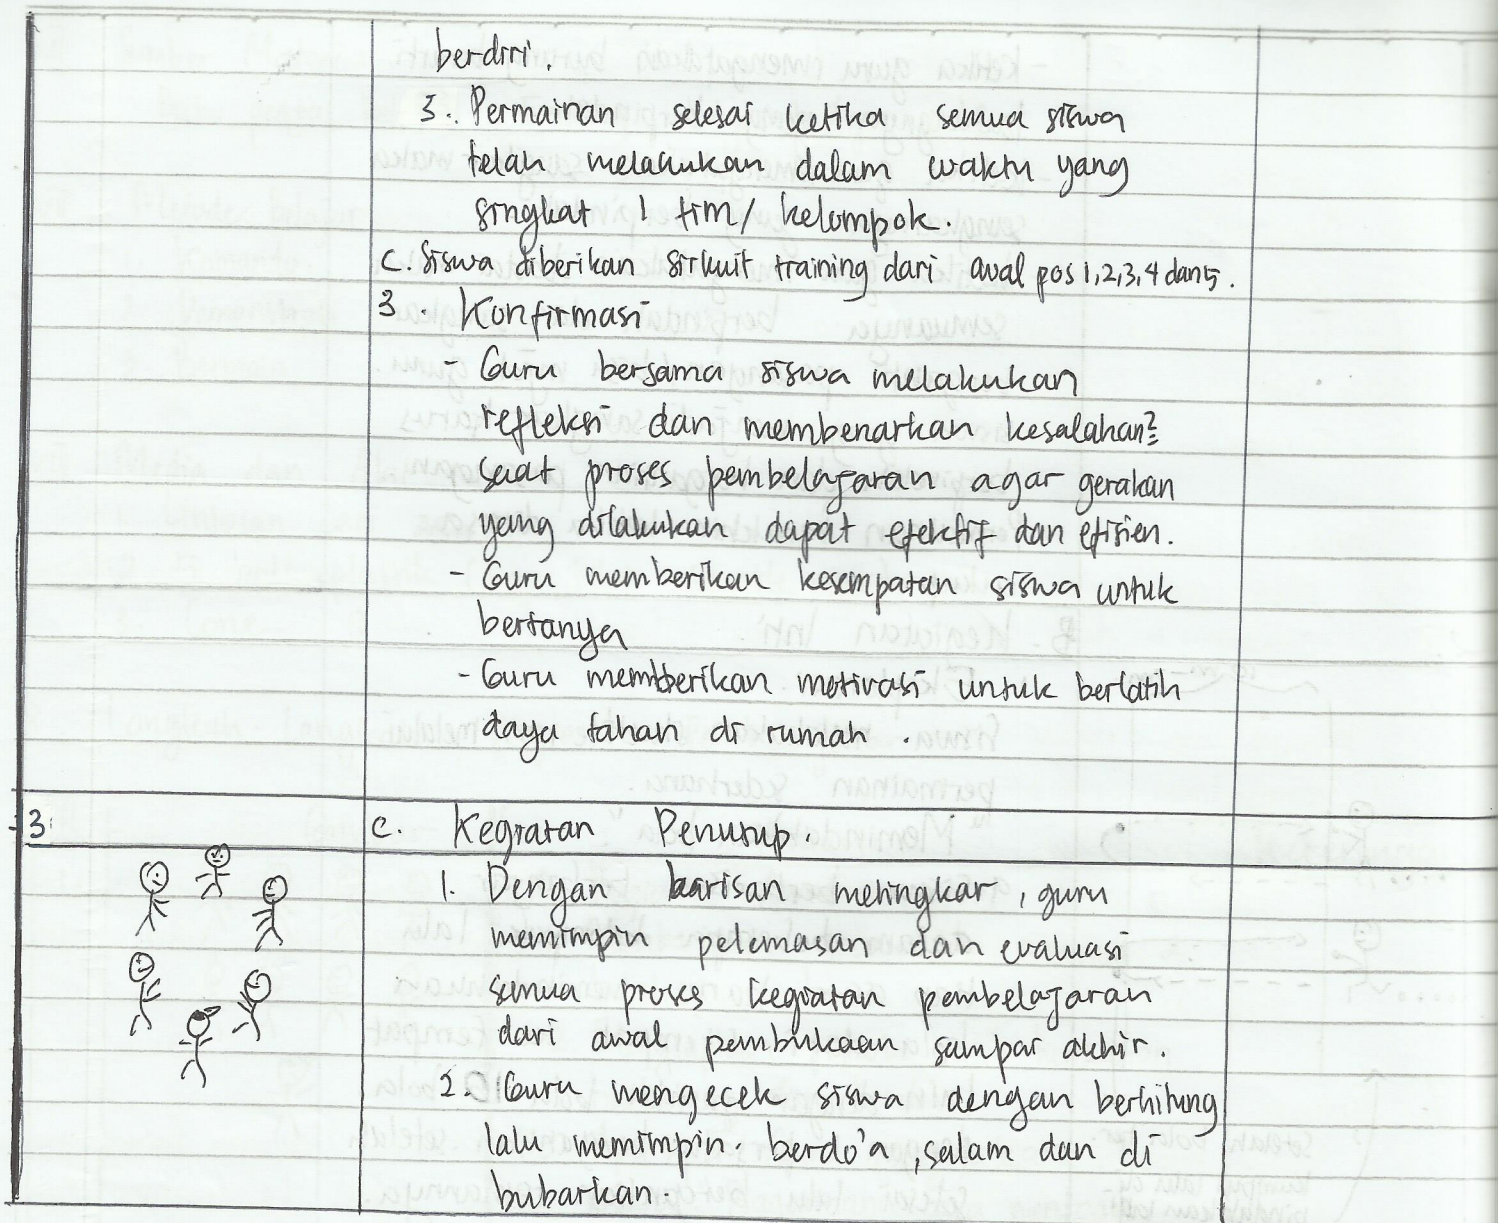 berdiri.
5. Permainan selesai ketika semua siswa
telah melakukan dalam waktu yang
singkat 1 tim/ kelompok.
C. Siswa diberikan sirkuit training dari awal pos 1,2,3,4 dan 5.
3. Konfirmasi
- Guru bersama siswa melakukan
refleksi dan membenarkan kesalahan2
saat proses pembelajaran agar gerakan
yang dilakukan dapat efektif dan efisien.
- Guru memberikan kesempatan siswa untuk
bertanya
- Guru memberikan motivasi untuk berlatih
daya tahan di rumah.
3
C. Kegiatan Penutup.
1. Dengan barisan melingkar, guru
memimpin pelemasan dan evaluasi
semua proses kegiatan pembelajaran
dari awal pembukaan sampai akhir.
2. Guru mengecek siswa dengan berhitung
lalu memimpin. berdo'a, salam dan di
bubarkan.